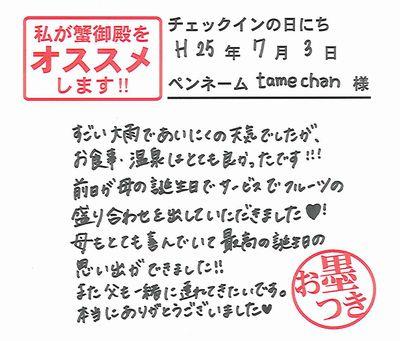 私が蟹御殿を
オススメ
します!!
チェックインの日にち
H 25 年 7 月 3 日
ペンネーム tame chan 様
すごい大雨であいにくの天気でしたが、
お食事・温泉はとても良かったです!!!
前日が母の誕生日でサービスでフルーツの
盛り合わせを出していただきました♥!
母もとても喜んでいて最高の誕生日の
思い出ができました!!
また父も一緒に連れてきたいです。
本当にありがとうございました♥
お墨つき